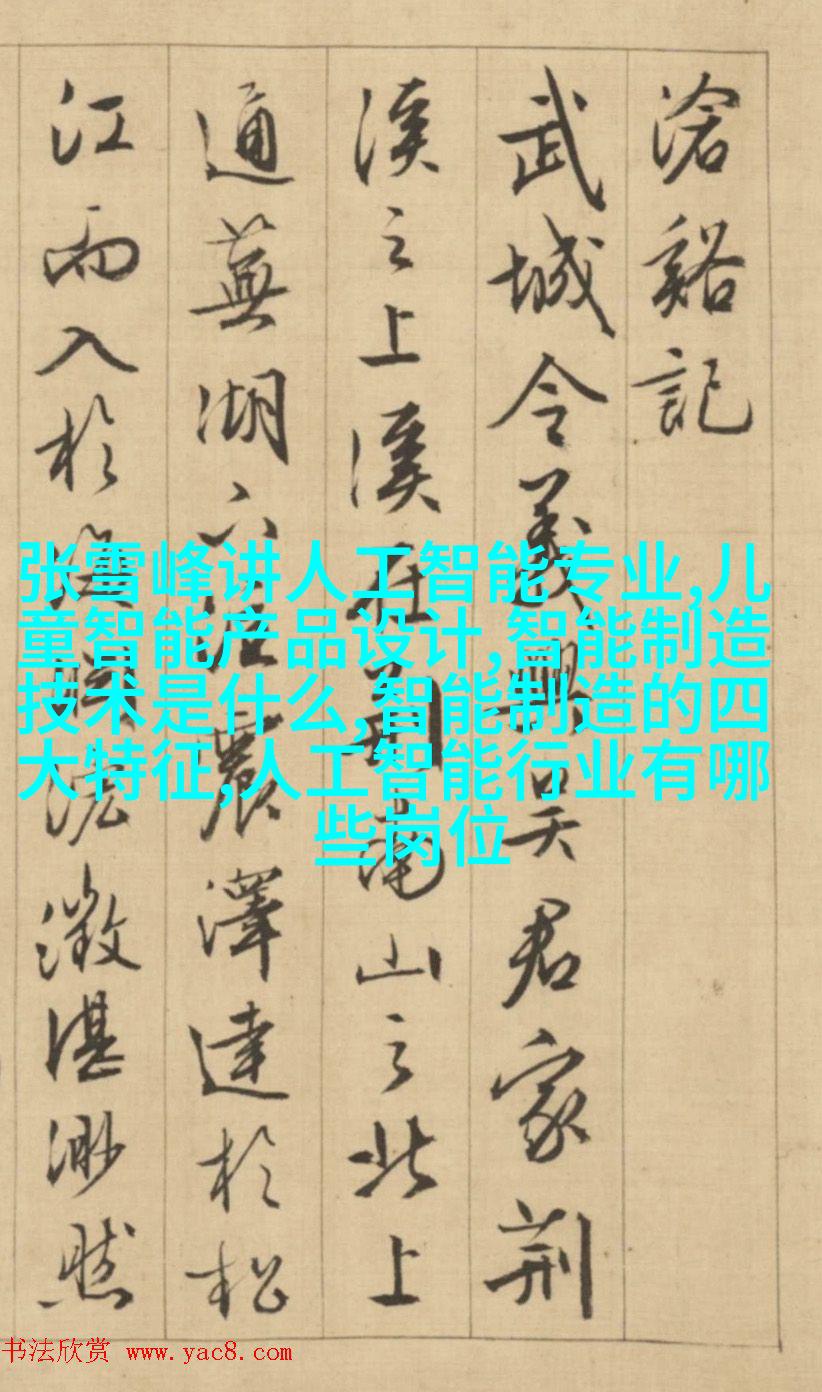 滄谿記
武城令義興吳君家荆
溪之上溪在荆南山之北上
通蕪湖下注震澤達於松
江而入於澂湛渺然
张雪峰讲人工智能专业,儿
童智能产品设计,智能制造
技术是什么,智能制造的四
大特征,人工智能行业有哪
些岗位
书法欣赏 www.yac8.com